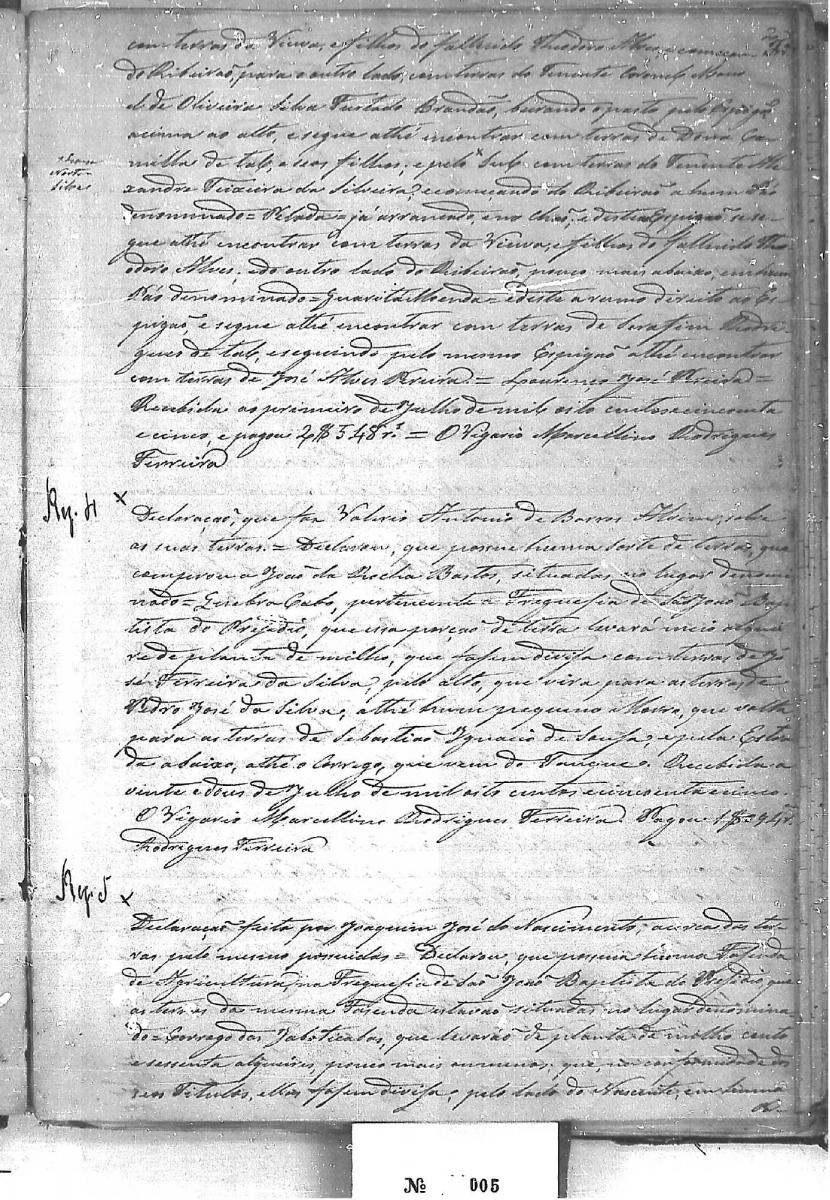 com terras da Viuva, e filhos do fallecido Theodoro Alves, e começa
do Ribeirão, para o outro lado, com terras do Tenente Coronel Mano
el de Oliveira Silva Furtado Brandão, beirando o pasto pelo Espigão
acima ao alto, e segue athé encontrar com terras de Dona Ca
milla de tal, e seos filhos, e pelo Sul com terras do Tenente Ale
xandre Teixeira da Silveira, e começando do Ribeirão a hum Páo
denominado = Pelada = já arrancado, e no chão, e deste a Espigão se se
gue athé encontrar com terras da Viuva, e filhos do fallecido Theo
doro Alves, e do outro lado do Ribeirão, pouco mais abaixo, em hum
Páo denominado = Guarita = e deste a rumo direito ao Es
pigão, e segue athé encontrar com terras de Serafim Rodri
gues de tal, e seguindo pelo mesmo Espigão athé encontrar
com terras de José Alves Pereira. = Lourenço José Pereira =
Recebida ao primeiro de Julho de mil oito centos e cincoenta
e cinco, e pagou 2$548 rs = O Vigario Marcellino Rodrigues
Ferreira
Reg. 4 x
Declaração, que faz Valerio Antonio de Barros sobre
as suas terras. = Declarou, que possue huma sorte de terras, que
comprou a João da Rocha Bastos, situadas no lugar denomi
nado = Quebra Cabo, pertencente a Freguesia de São João Bap
tista do Presidio, que essa porção de terra levará meio alquei
re de planta de milho, que fasem divisa com terras de Jo
sé Ferreira da Silva, pelo alto, que vira para as terras de
Pedro José da Silva, athé hum pequeno Morro, que volta
para as terras de Sebastião Ignacio de Sousa, e pela Estra
da abaixo, athé o Corrego, que vem do Tanque. Recebida a
vinte e dous de Julho de mil oito centos e cincoenta e cinco.
O Vigario Marcellino Rodrigues Ferreira. Pagou
Rodrigues Ferreira
Reg. 5 x
Declaração feita por Joaquim José do Nascimento, acerca das ter
ras pelo mesmo possuidas = Declarou, que possuia huma Fasenda
de Agricultura, na Freguesia de São João Baptista do Presidio, que
as terras da mesma Fasenda estavão situadas no lugar denomina
do = Corrego das Jaboticabas, que levarão de planta de milho cento
e sessenta alqueires, pouco mais ou menos, que na conformidade dos
seos Titulos, ellas fasem divisa, pelo lado do Nascente, em huma
Nº 005